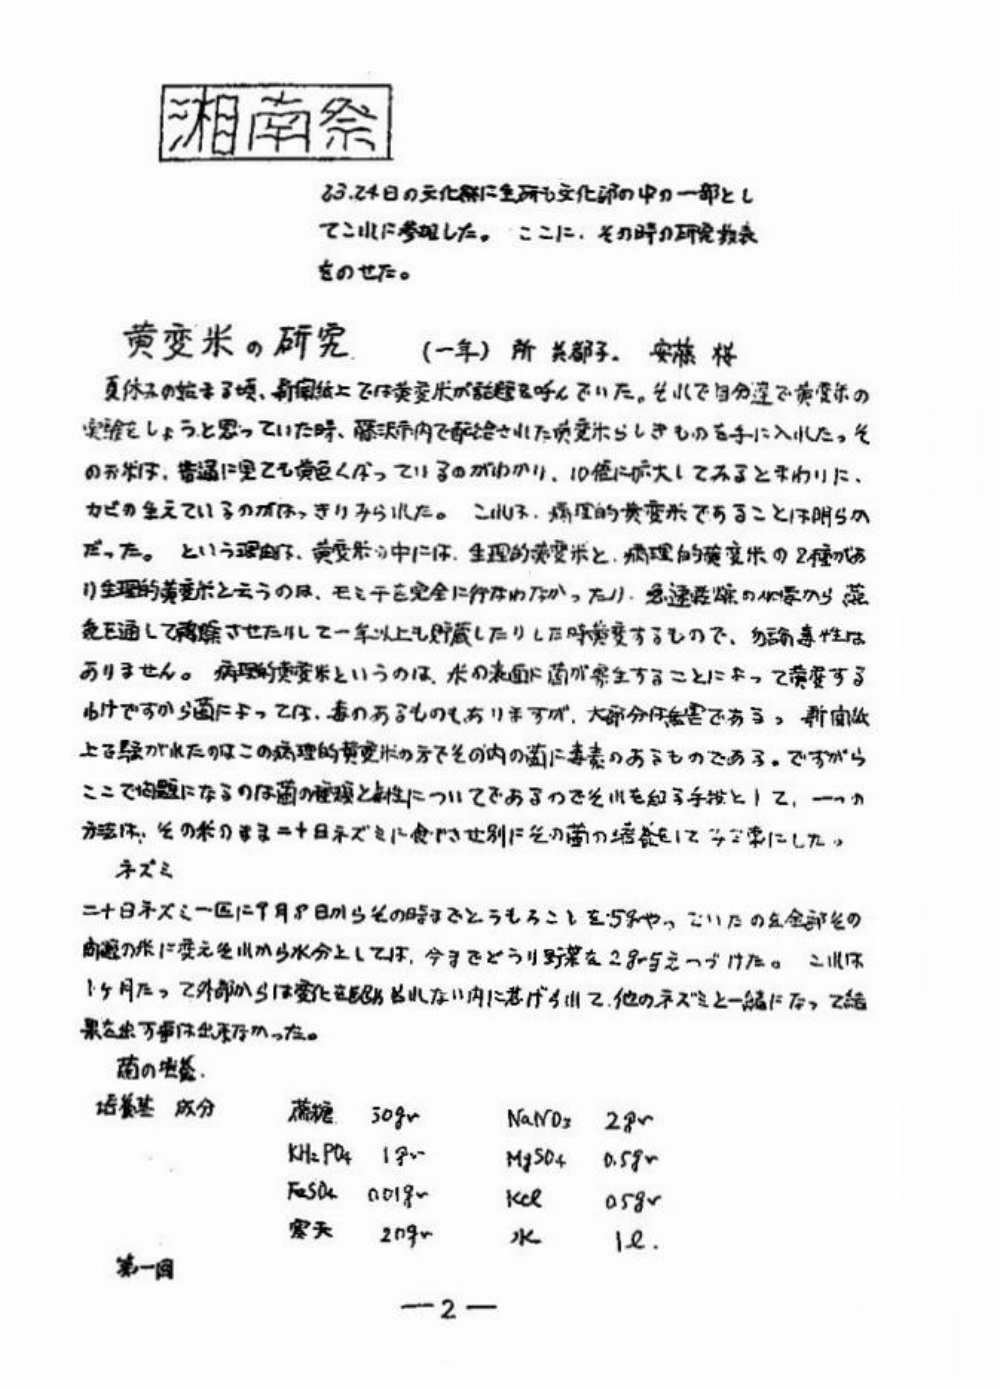 湘南祭
23.24日の文化祭に生研も文化部の中の一部とし
てこれに参加した。 ここに、その時の研究発表
をのせた。
黄変米の研究 (一年) 所 美都子。 安藤 桜
夏休みの始まる頃、新聞紙上では黄変米が話題を呼んでいた。それで自分達で黄変米の
実験をしようと思っていた時、藤沢市内で配給された黄変米らしきものを手に入れたっそ
のお米は、普通に見ても黄色くなっているのがわかり、10倍に拡大してみるとまわりに、
カビの生えているのがはっきりみられた。 これは、病理的黄変米であることは明らか
だった。 という理由は、黄変米の中には、生理的黄変米と、病理的黄変米の2種があ
り生理的黄変米と云うのは、モミ干を完全に行なわなかったり、急速乾燥の必要から蒸
気を通して乾燥させたりして一年以上も貯蔵したりした時黄変するもので、勿論毒性は
ありません。 病理的黄変米というのは、米の表面に菌が寄生することによって黄変する
わけですから菌によっては、毒のあるものもありますが、大部分は無害である。 新聞紙
上を騒がれたのはこの病理的黄変米の方でその内の菌に毒素のあるものである。ですから
ここで問題になるのは菌の種類と毒性についてであるのでそれを知る手段として、一つの
方法は、その米のまま二十日ネズミに食べさせ別にその菌の培養をして
ネズミ
二十日ネズミ一匹に9月8日からその時までとうもろこしを5grやっていたのを全部その
問題の米に変えそれから水分としては、今までどうり野菜を2gr与えつづけた。 これは
1ヶ月たって外部からは変化を認められない内に逃げられて、他のネズミと一緒になって結
果を出す事は出来なかった。
菌の培養.
培養基 成分 蔗糖 30gr NaNO3 2gr
KH2PO4 1gr MgSO4 0.5gr
FeSO4 0.01gr KCl 0.5gr
寒天 20gr 水 1l.
第一回
—2—